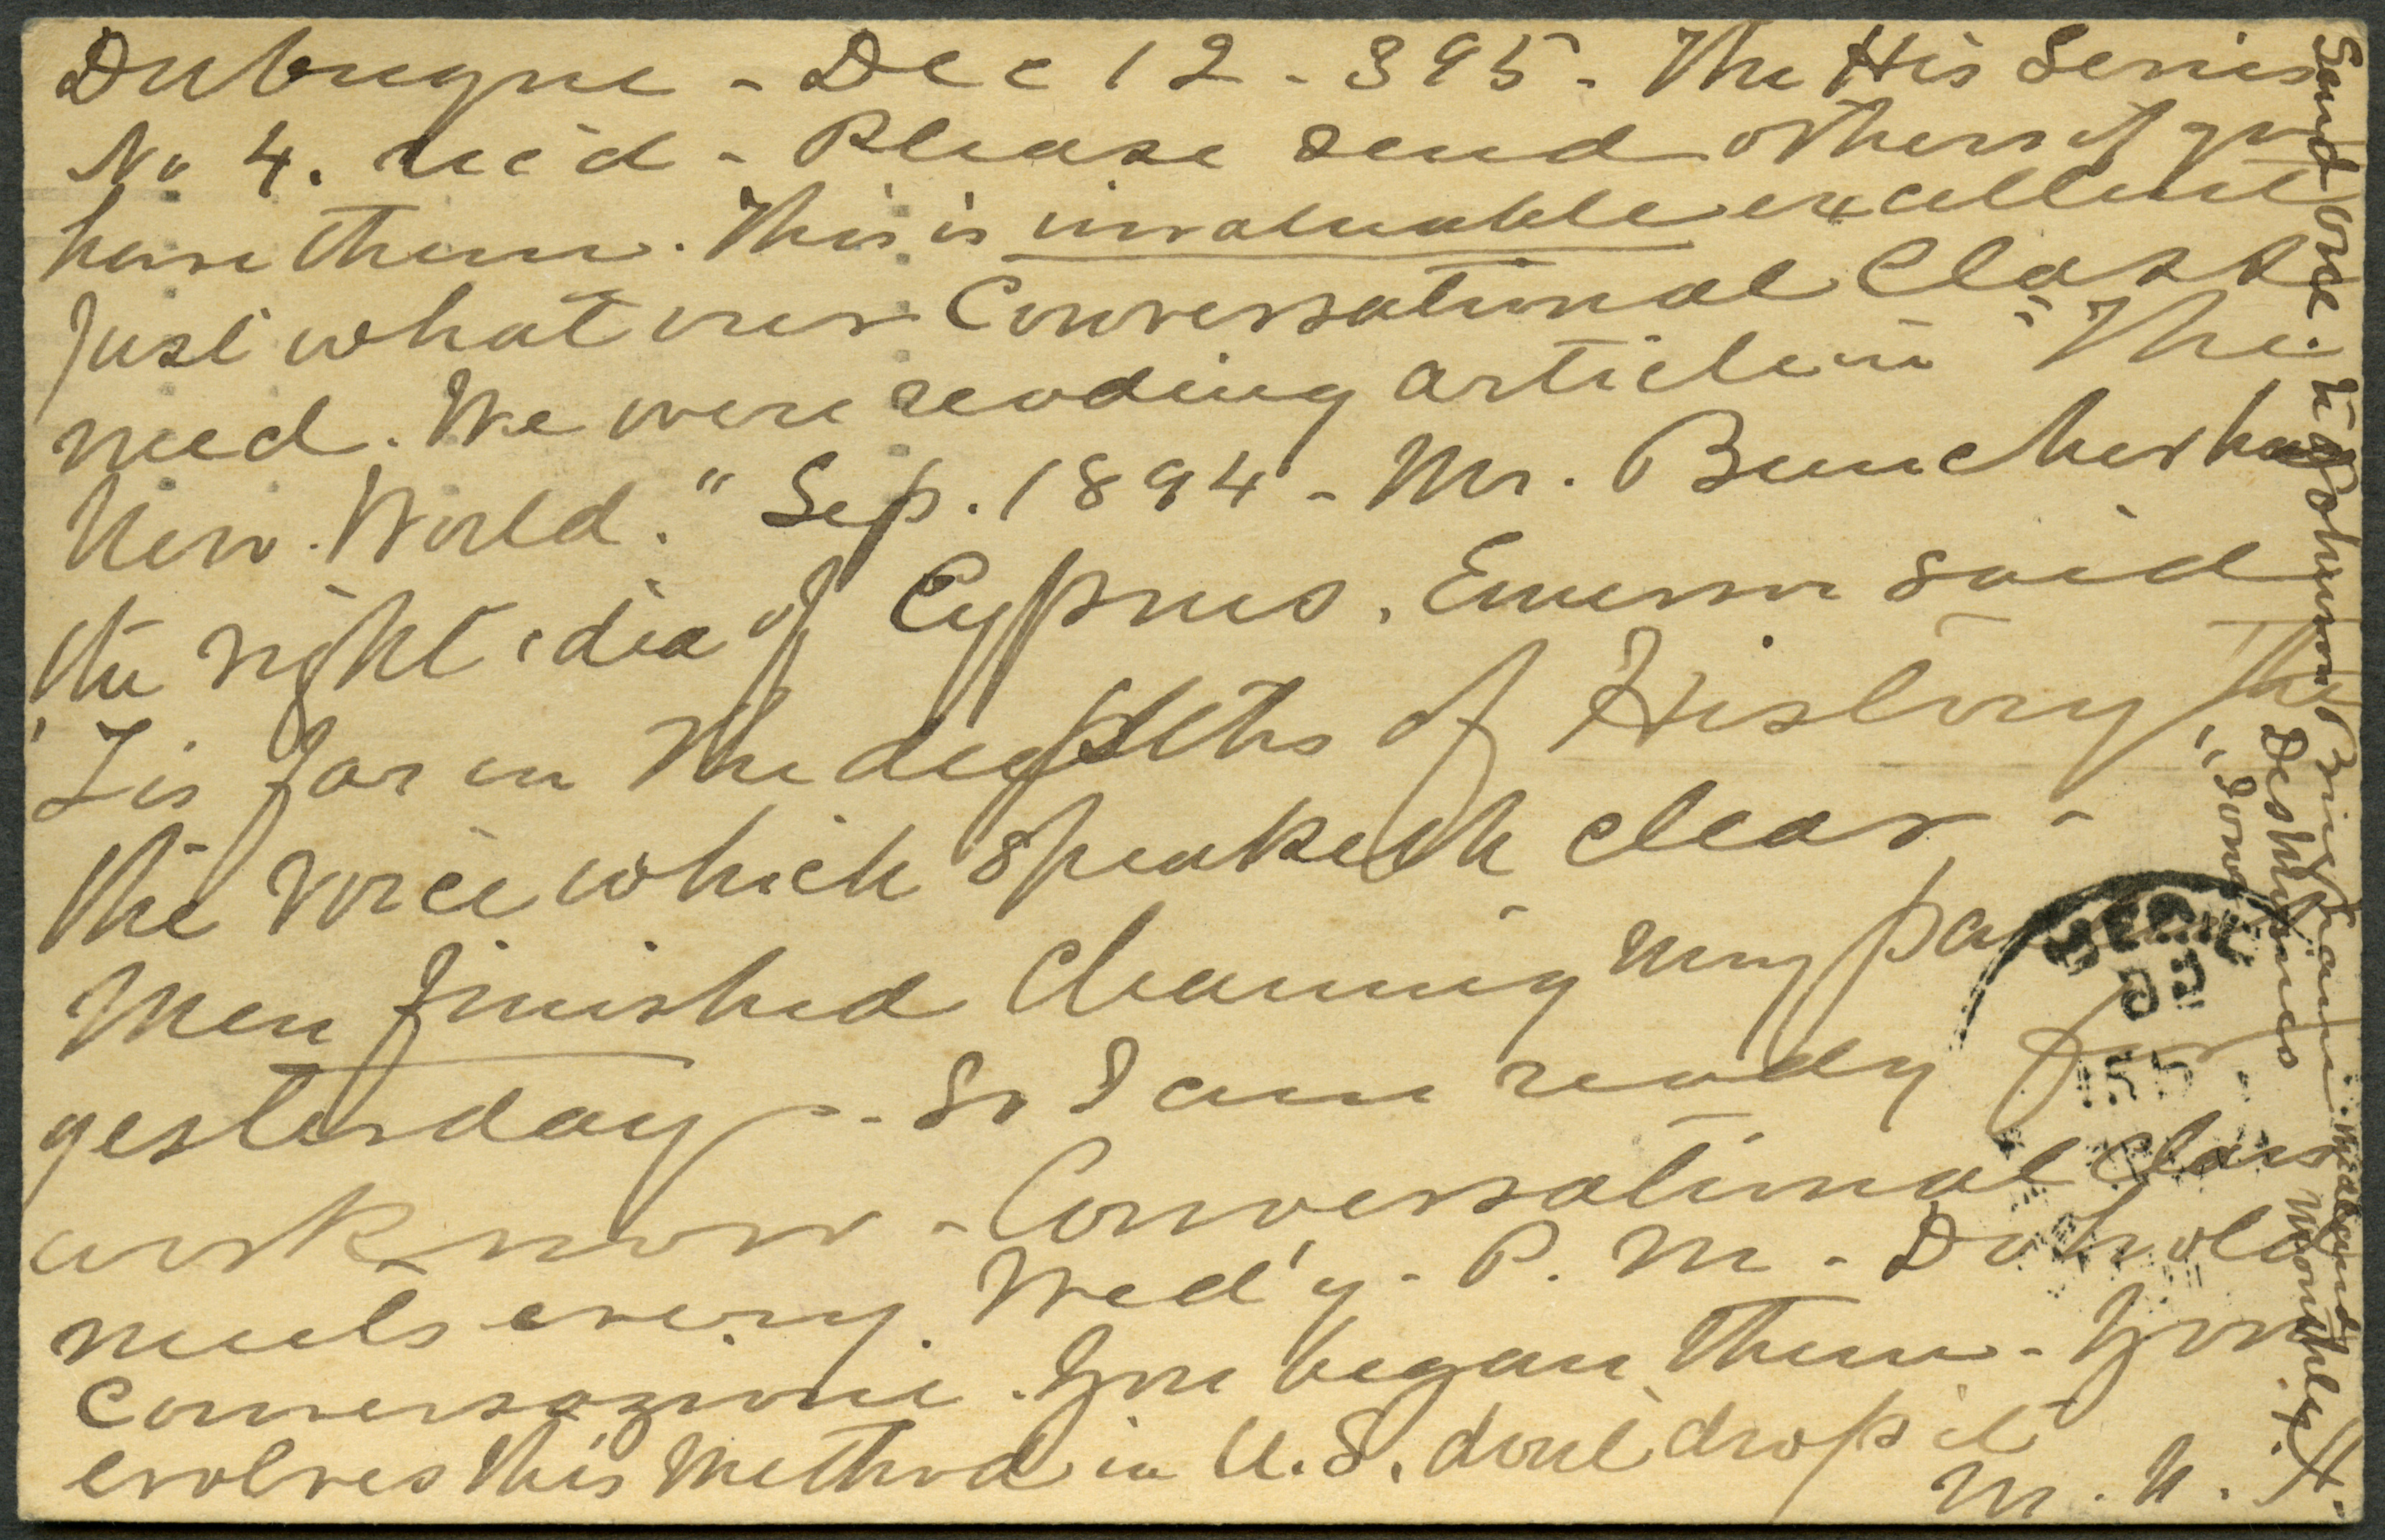 Dubuque - Dec 12 - 895 - The His Series
No 4. rec'd - Please send others if you
have them. This is invaluable excellent
Just what our Conversational Class
need. We were reading article in "The
New World." Sep. 1894 - Mr. Buncher has
the right idea of Cyprus. Emerson said
"Tis far in the deepths of History
the voice which speaketh clear -
Men finished cleaning my
yesterday - So I am ready for
work now - Conversational Class
meets every Wed'y - P. M. - Do hold
Conversazioni. You began them - You
evolves this method in U.S. dont drop it
M. N. H.
Send one.
Johnson
Brigham
Midland Monthly.
Des Moines
" Iowa
DEC